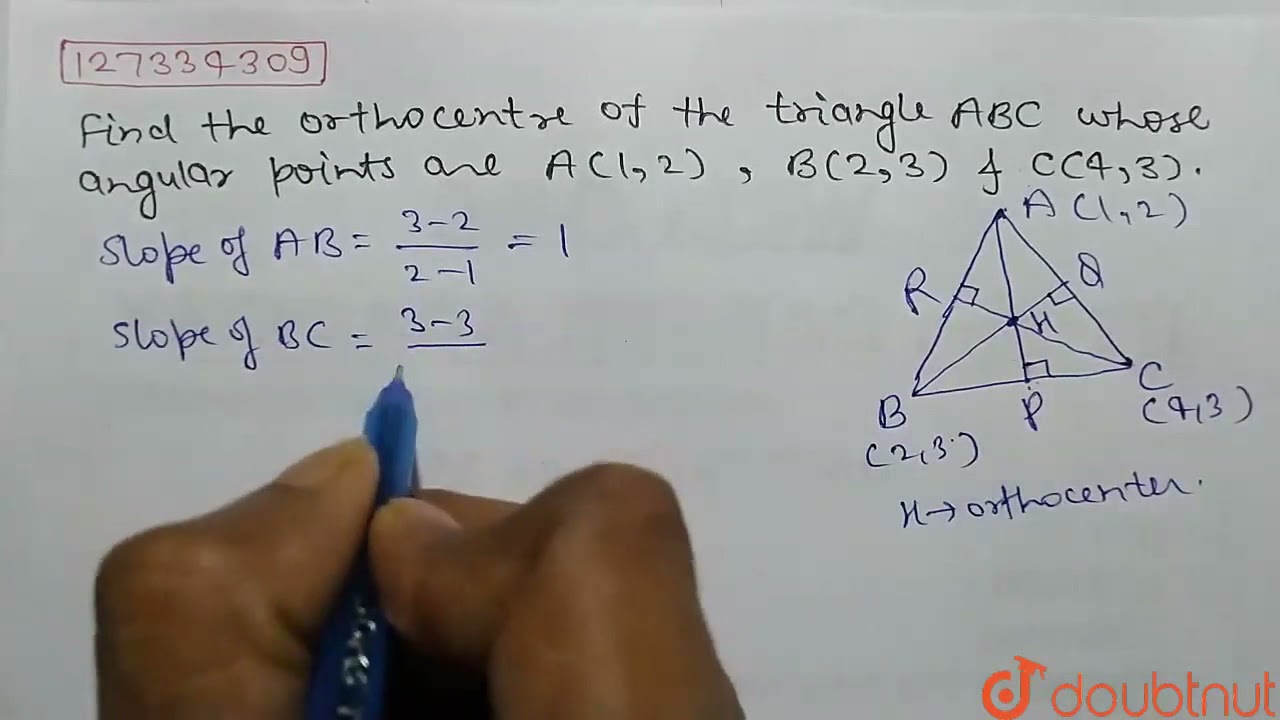 127334309
Find the orthocentre of the triangle ABC whose
angular points are A(1,2), B(2,3) & C(4,3).
Slope of AB = 3-2 / 2-1 = 1
Slope of BC = 3-3
A(1,2)
R
Q
H
B
(2,3)
P
C
(4,3)
H→orthocenter.
doubtnut